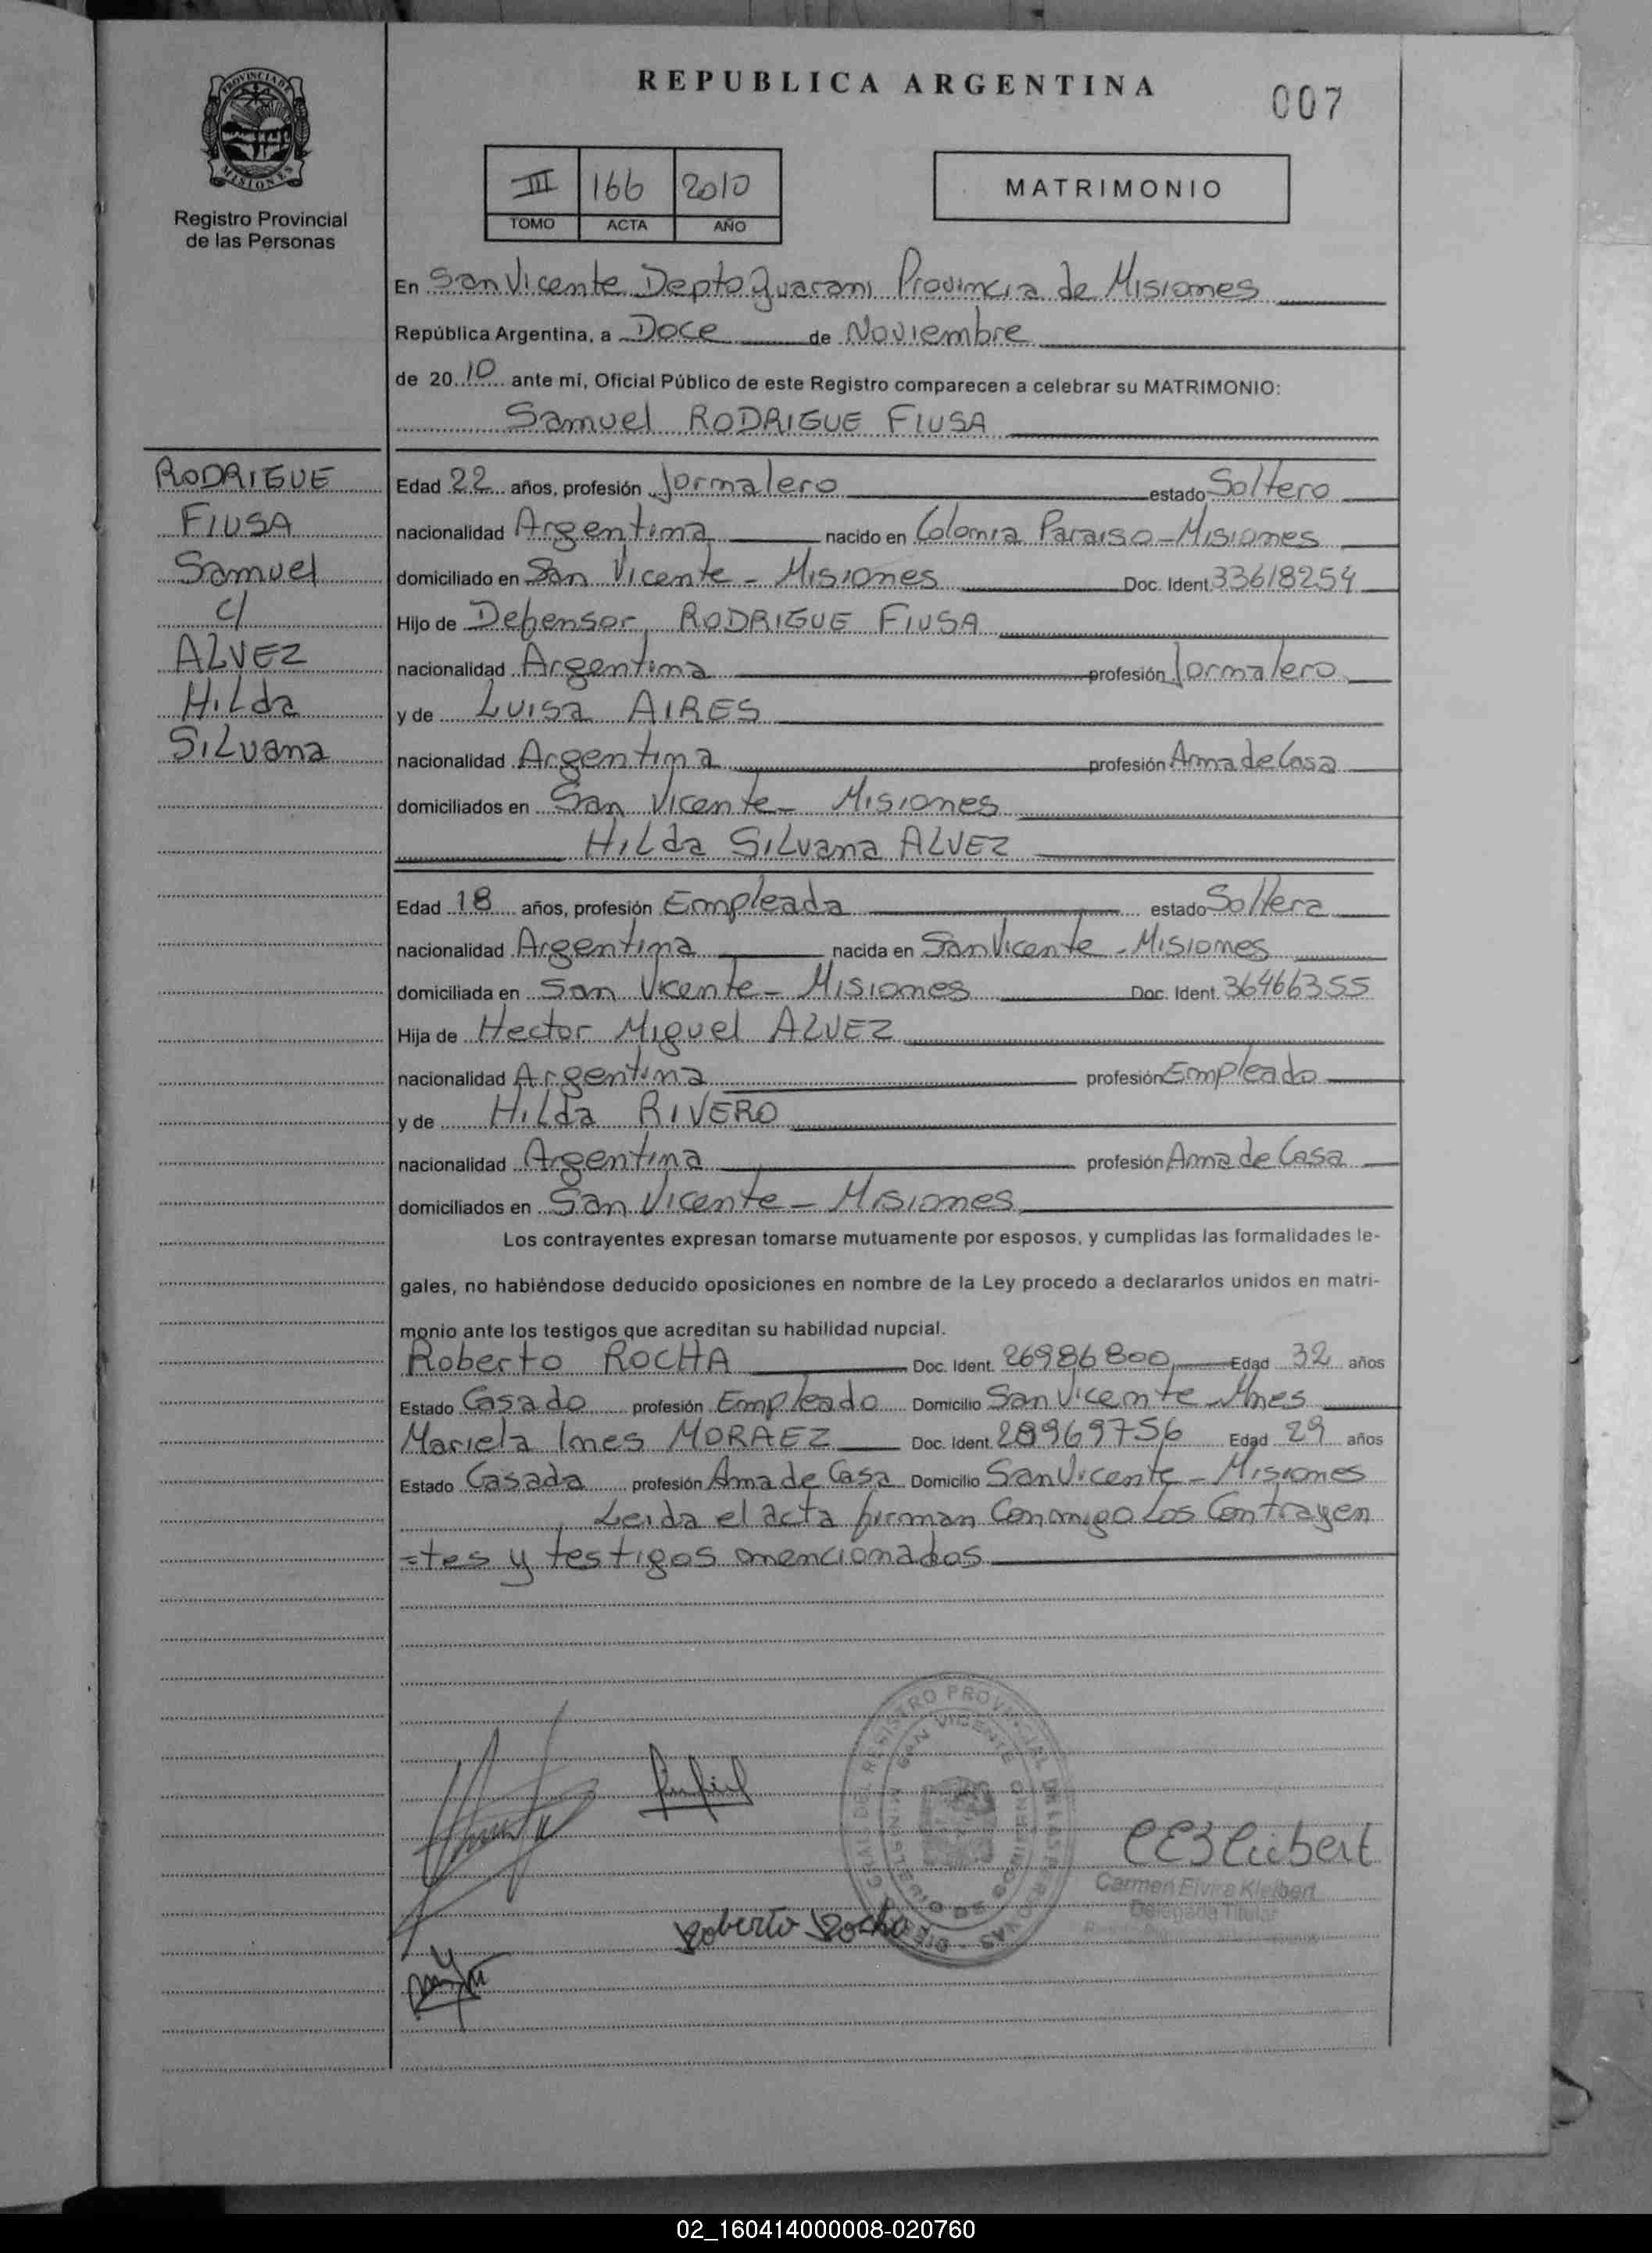 REPUBLICA ARGENTINA
007
PROVINCIA DE
MISIONES
Registro Provincial
de las Personas
III 166 2010
TOMO ACTA AÑO
MATRIMONIO
En San Vicente Depto Guarani Provincia de Misiones
República Argentina, a Doce de Noviembre
de 20 10 ante mí, Oficial Público de este Registro comparecen a celebrar su MATRIMONIO:
Samuel RODRIGUE FIUSA
RODRIGUE
FIUSA
Samuel
c/
ALVEZ
Hilda
Silvana
Edad 22 años, profesión Jornalero estado Soltero
nacionalidad Argentina nacido en Colonia Paraiso - Misiones
domiciliado en San Vicente - Misiones Doc. Ident. 33618254
Hijo de Defensor RODRIGUE FIUSA
nacionalidad Argentina profesión Jornalero
y de Luisa AIRES
nacionalidad Argentina profesión Ama de Casa
domiciliados en San Vicente - Misiones
Hilda Silvana ALVEZ
Edad 18 años, profesión Empleada estado Soltera
nacionalidad Argentina nacida en San Vicente - Misiones
domiciliada en San Vicente - Misiones Doc. Ident. 36466355
Hija de Hector Miguel ALVEZ
nacionalidad Argentina profesión Empleado
y de Hilda RIVERO
nacionalidad Argentina profesión Ama de Casa
domiciliados en San Vicente - Misiones
Los contrayentes expresan tomarse mutuamente por esposos, y cumplidas las formalidades le-
gales, no habiéndose deducido oposiciones en nombre de la Ley procedo a declararlos unidos en matri-
monio ante los testigos que acreditan su habilidad nupcial.
Roberto ROCHA Doc. Ident. 26986800 Edad 32 años
Estado Casado profesión Empleado Domicilio San Vicente - Mnes
Mariela Ines MORAEZ Doc. Ident. 28969756 Edad 29 años
Estado Casada profesión Ama de Casa Domicilio San Vicente - Misiones
Leida el acta firman Conmigo Los Contrayen
=tes y testigos mencionados
SAN VICENTE
Roberto Rocha
CEKleibert
Carmen Elvira Kleibert
Delegada Titular
02_160414000008-020760